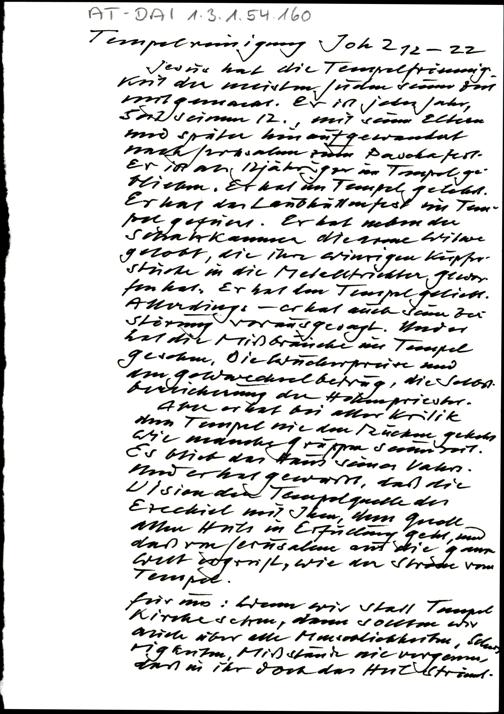 AT-DAI 1.3.1.54.160
Tempelreinigung Joh 2 12-22
Jesus hat die Tempelfrömmig-
keit der meisten Juden seiner Zeit
mitgemacht. Er ist jedes Jahr,
seit seinem 12., mit seinen Eltern
und später hinaufgewandert
nach Jerusalem zum Paschafest.
Er ist als 12jähriger im Tempel ge-
blieben. Er hat im Tempel gelehrt.
Er hat das Laubhüttenfest im Tem-
pel gefeiert. Er hat neben der
Schatzkammer die arme Witwe
gelobt, die ihre winzigen Kupfer-
stücke in die Metalltrichter gewor-
fen hat. Er hat den Tempel geliebt.
Allerdings - er hat auch seine Zer-
störung vorausgesagt. Und er
hat die Mißbräuche im Tempel
gesehen, Die Wucherpreise und
den geldwechselbetrug, die Selbst-
bereicherung der Hohenpriester.
Aber er hat bei aller Kritik
dem Tempel nie den Rücken gekehrt
wie manche gruppen seiner Zeit.
Es blieb das Haus seines Vaters.
Und er hat gewusst, daß die
Vision der Tempelquelle des
Ezechiel mit Ihm, dem Quell
allen Heils in Erfüllung geht, und
daß von Jerusalem aus die ganze
Welt ergreift, wie der Strom vom
Tempel.
für uns: Wenn wir statt Tempel
Kirche setzen, dann sollten wir
auch über alle Menschlichkeiten, Schwie-
rigkeiten, Mißstände nie vergessen
daß in ihr doch das Heil strömt.